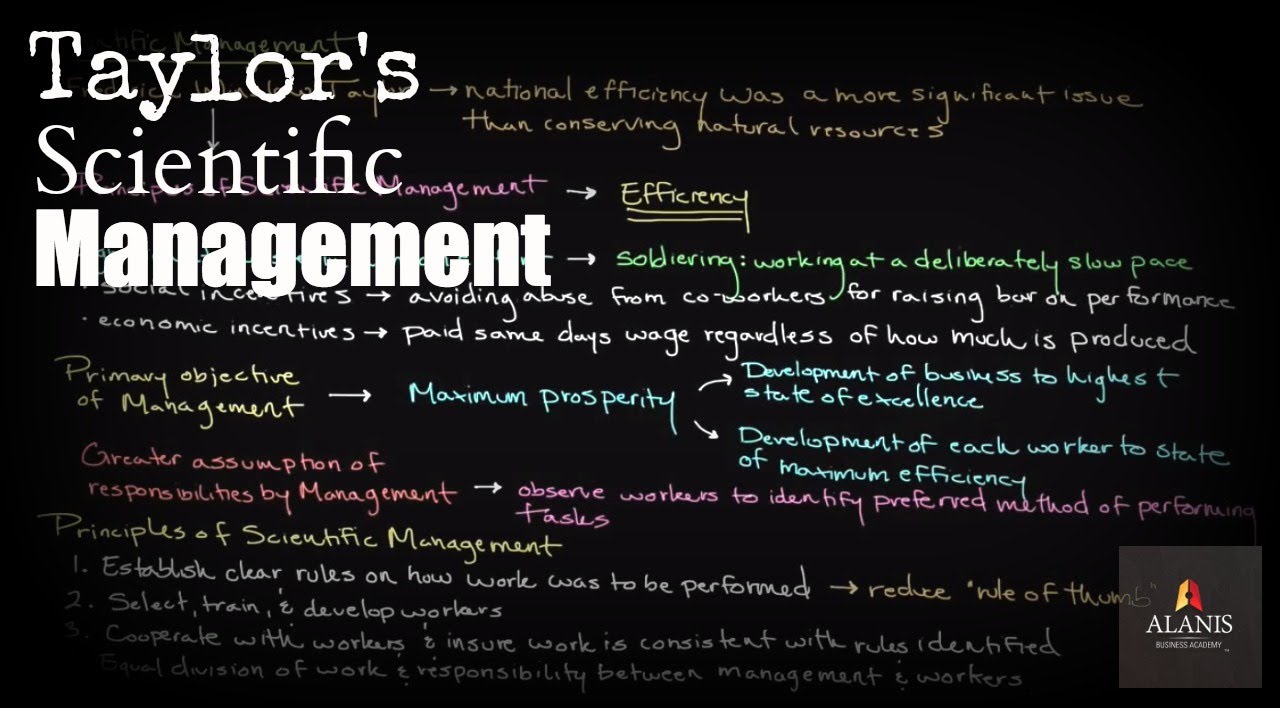 Taylor's
Scientific
Management
Scientific Management
Taylor → national efficiency was a more significant issue
than conserving natural resources
Principles of Scientific Management → Efficiency
→ soldiering: working at a deliberately slow pace
· social incentives → avoiding abuse from co-workers for raising bar on performance
· economic incentives → paid same days wage regardless of how much is produced
Primary objective
of Management → Maximum prosperity
Development of business to highest
state of excellence
Development of each worker to state
of maximum efficiency
Greater assumption of
responsibilities by Management → observe workers to identify preferred method of performing
tasks
Principles of Scientific Management
1. Establish clear rules on how work was to be performed → reduce "rule of thumb"
2. Select, train, & develop workers
3. Cooperate with workers & insure work is consistent with rules identified
Equal division of work & responsibility between management & workers
ALANIS
BUSINESS ACADEMY™